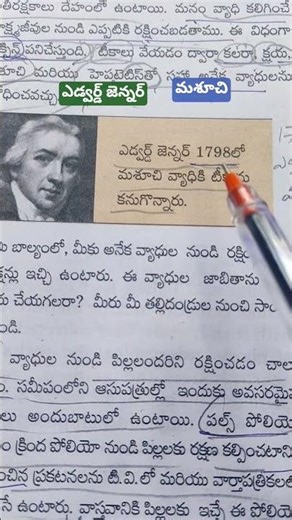 తిరక్షకాలు దేహంలో ఉంటాయి. మనం వ్యాధి కలిగించే
క్ష్మజీవుల నుండి ఎప్పటికి రక్షించబడతాము. ఈ విధంగా
పనిచేస్తుంది. టీకాలు వేయడం ద్వారా కలరా, క్షయ,
శూచి మరియు హెపటైటిస్‌తో సహా అనేక వ్యాధులను
ధించవచ్చు
ఎడ్వర్డ్ జెన్నర్
మశూచి
ఎడ్వర్డ్ జెన్నర్ 1798లో
మశూచి వ్యాధికి
కనుగొన్నారు.
బాల్యంలో, మీకు అనేక వ్యాధుల నుండి రక్షి
ఇచ్చి ఉంటారు. ఈ వ్యాధుల జాబితాను
చేయగలరా? మీరు మీ తల్లిదండ్రుల నుంచి
ది.
వ్యాధుల నుండి పిల్లలందరిని రక్షించడం చాలా
సమీపంలోని ఆసుపత్రుల్లో ఇందుకు అవసరమైన
లు అందుబాటులో ఉంటాయి. పల్స్ పోలియో
క్రింద పోలియో నుండి పిల్లలకు రక్షణ కల్పించటాని
చిన ప్రకటనలను టి.వి.లో మరియు వార్తాపత్రికలలో
ఉంటారు. వాస్తవానికి పిల్లలకు ఇచ్చే ఈ పోలియో